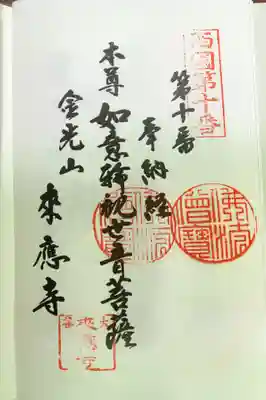 西国第十番
第十番
奉納経
佛法僧寶
本尊 如意輪観世音菩薩
金光山 來應寺